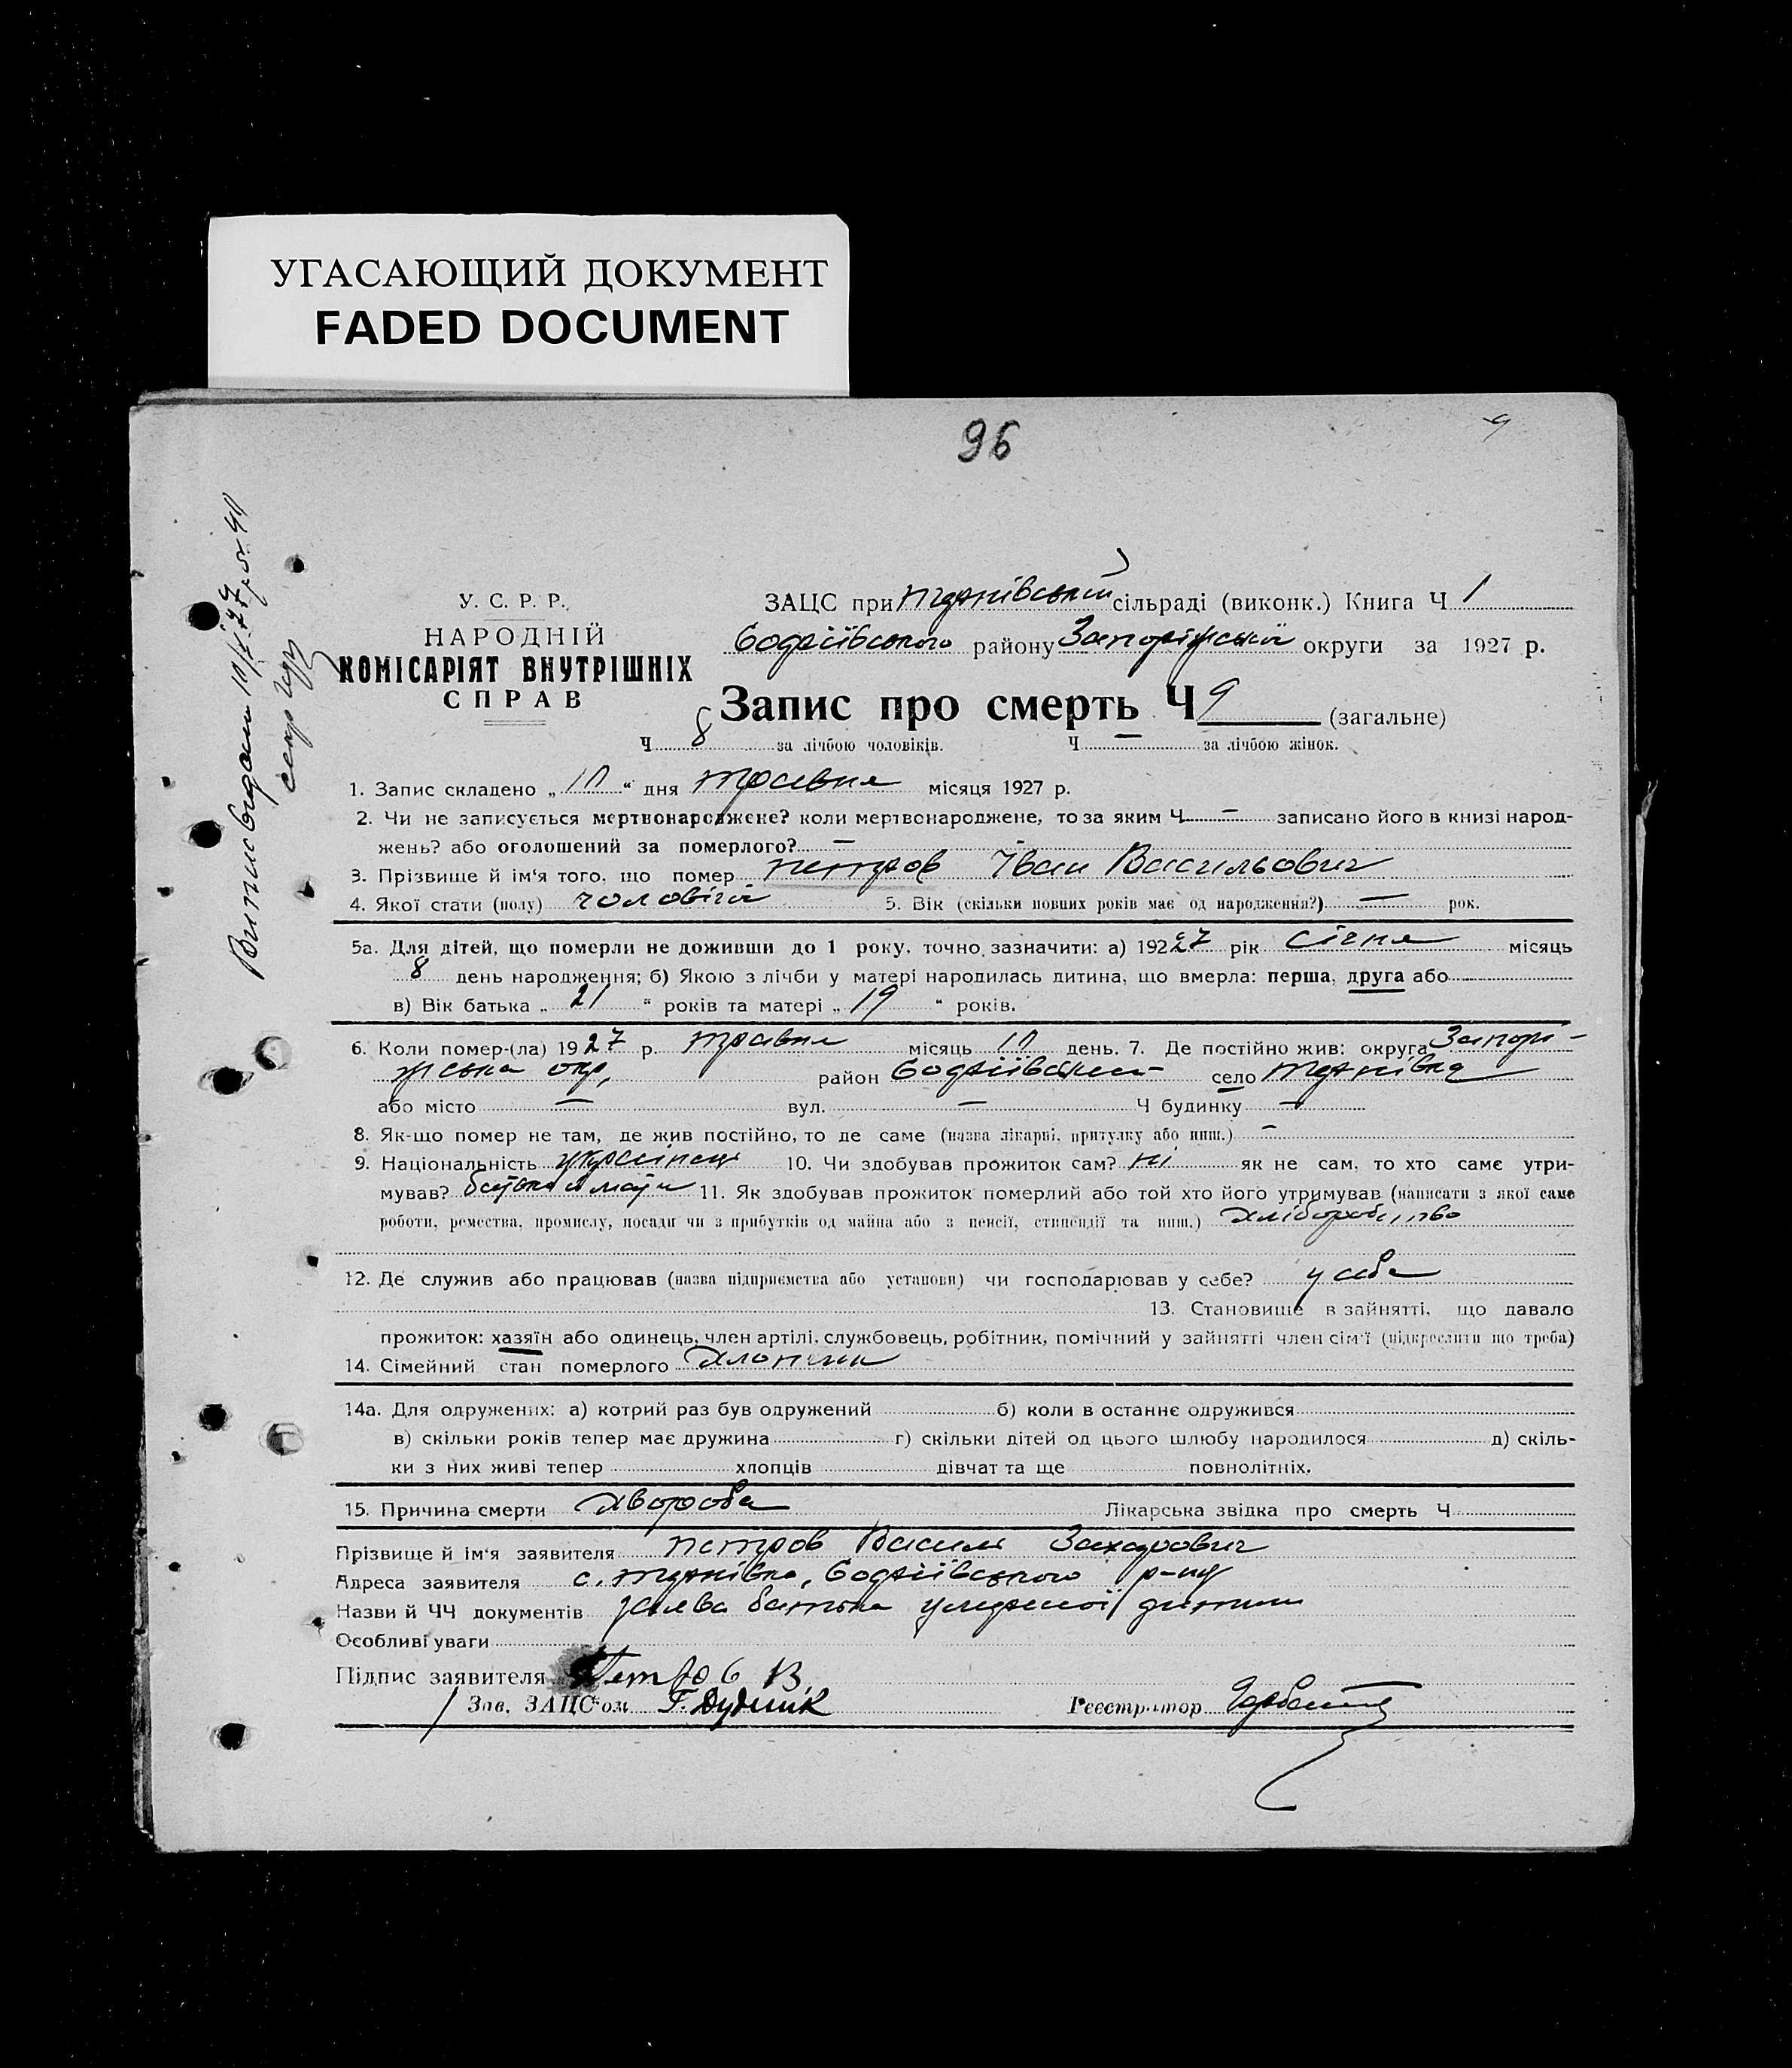 УГАСАЮЩИЙ ДОКУМЕНТ
FADED DOCUMENT
96
9
Випис видани 10/V 27 р. за 49
секр
У. С. Р. Р.
НАРОДНІЙ
КОМІСАРІЯТ ВНУТРІШНІХ
СПРАВ
ЗАЦС при сільраді (виконк.) Книга Ч 1
району Запоріжської округи за 1927 р.
Запис про смерть Ч 9 (загальне)
Ч 8 за лічбою чоловіків. Ч — за лічбою жінок.
1. Запис складено „ 10 " дня травня місяця 1927 р.
2. Чи не записується мертвонароджене? коли мертвонароджене, то за яким Ч — записано його в книзі народ-
жень? або оголошений за померлого? —
3. Прізвище й ім'я того, що помер петров Іван Васильович
4. Якої стати (полу) чоловіча 5. Вік (скільки повних років має од народження?) — рок.
5а. Для дітей, що померли не доживши до 1 року, точно зазначити: а) 1927 рік січня місяць
8 день народження; б) Якою з лічби у матері народилась дитина, що вмерла: перша, друга або
в) Вік батька „ 21 " років та матері „ 19 " років.
6. Коли помер-(ла) 1927 р. травня місяць 10 день. 7. Де постійно жив: округа Запорі-
жська окр, район село
або місто — вул. — Ч будинку —
8. Як-що помер не там, де жив постійно, то де саме (назва лікарні, притулку або инш.) —
9. Національність українець 10. Чи здобував прожиток сам? ні як не сам, то хто саме утри-
мував? батько й мати 11. Як здобував прожиток померлий або той хто його утримував (написати з якої саме
роботи, ремества, промислу, посади чи з прибутків од майна або з пенсії, стипендії та инш.) хліборобство
12. Де служив або працював (назва підприємства або установи) чи господарював у себе? у себе
13. Становище в зайнятті, що давало
прожиток: хазяїн або одинець, член артілі, службовець, робітник, помічний у зайнятті член сім'ї (підкреслити що треба)
14. Сімейний стан померлого хлопчик
14а. Для одружених: а) котрий раз був одружений б) коли в останнє одружився
в) скільки років тепер має дружина г) скільки дітей од цього шлюбу народилося д) скіль-
ки з них живі тепер хлопців дівчат та ще повнолітніх.
15. Причина смерти хвороба Лікарська звідка про смерть Ч
Прізвище й ім'я заявителя петров Василь Захарович
Адреса заявителя с. р-ну
Назви й ЧЧ документів заява батька умершої дитини
Особливі уваги
Підпис заявителя Петров В,
Зав. ЗАЦС'ом Г. Дудник Реєстратор